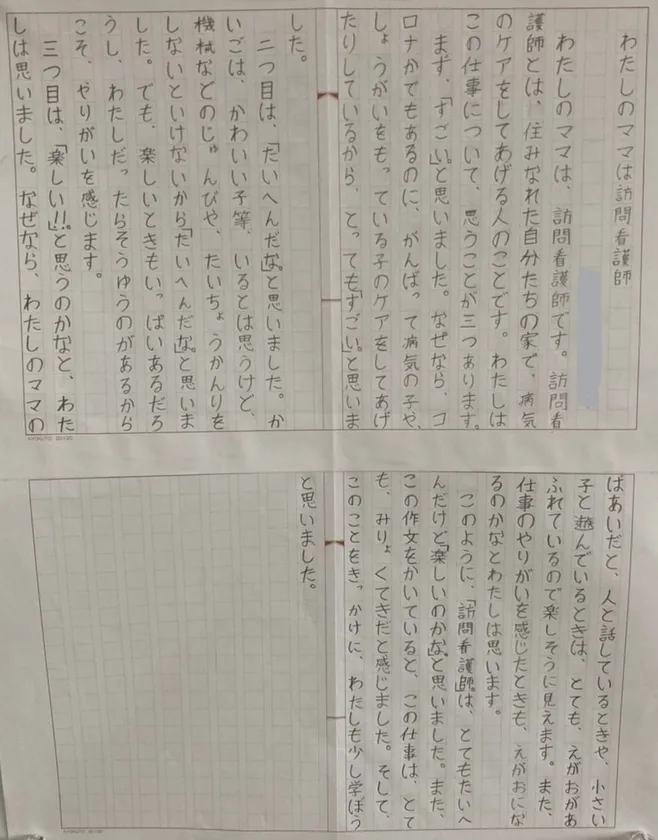 わたしのママは訪問看護師
わたしのママは、訪問看護師です。訪問看
護師とは、住みなれた自分たちの家で、病気
のケアをしてあげる人のことです。わたしは
この仕事について、思うことが三つあります。
まず、「すごい。」と思いました。なぜなら、コ
ロナかでもあるのに、がんばって病気の子や、
しょうがいをもっている子のケアをしてあげ
たりしているから、とっても「すごい。」と思いま
した。
二つ目は、「たいへんだな。」と思いました。か
いごは、かわいい子等、いるとは思うけど、
機械などのじゅんびや、たいちょうかんりを
しないといけないから「たいへんだな。」と思いま
した。でも、楽しいときもいっぱいあるだろ
うし、わたしだったらそうゆうのがあるから
こそ、やりがいを感じます。
三つ目は、「楽しい!!。」と思うのかなと、わた
しは思いました。なぜなら、わたしのママの
ばあいだと、人と話しているときや、小さい
子と遊んでいるときは、とても、えがおがあ
ふれているので楽しそうに見えます。また、
仕事のやりがいを感じたときも、えがおにな
るのかなとわたしは思います。
このように、「訪問看護師。」は、とてもたいへ
んだけど「楽しいのかな。」と思いました。また、
この作文をかいていると、この仕事は、とて
も、みりょくてきだと感じました。そして、
このことをきっかけに、わたしも少し学ぼう
と思いました。